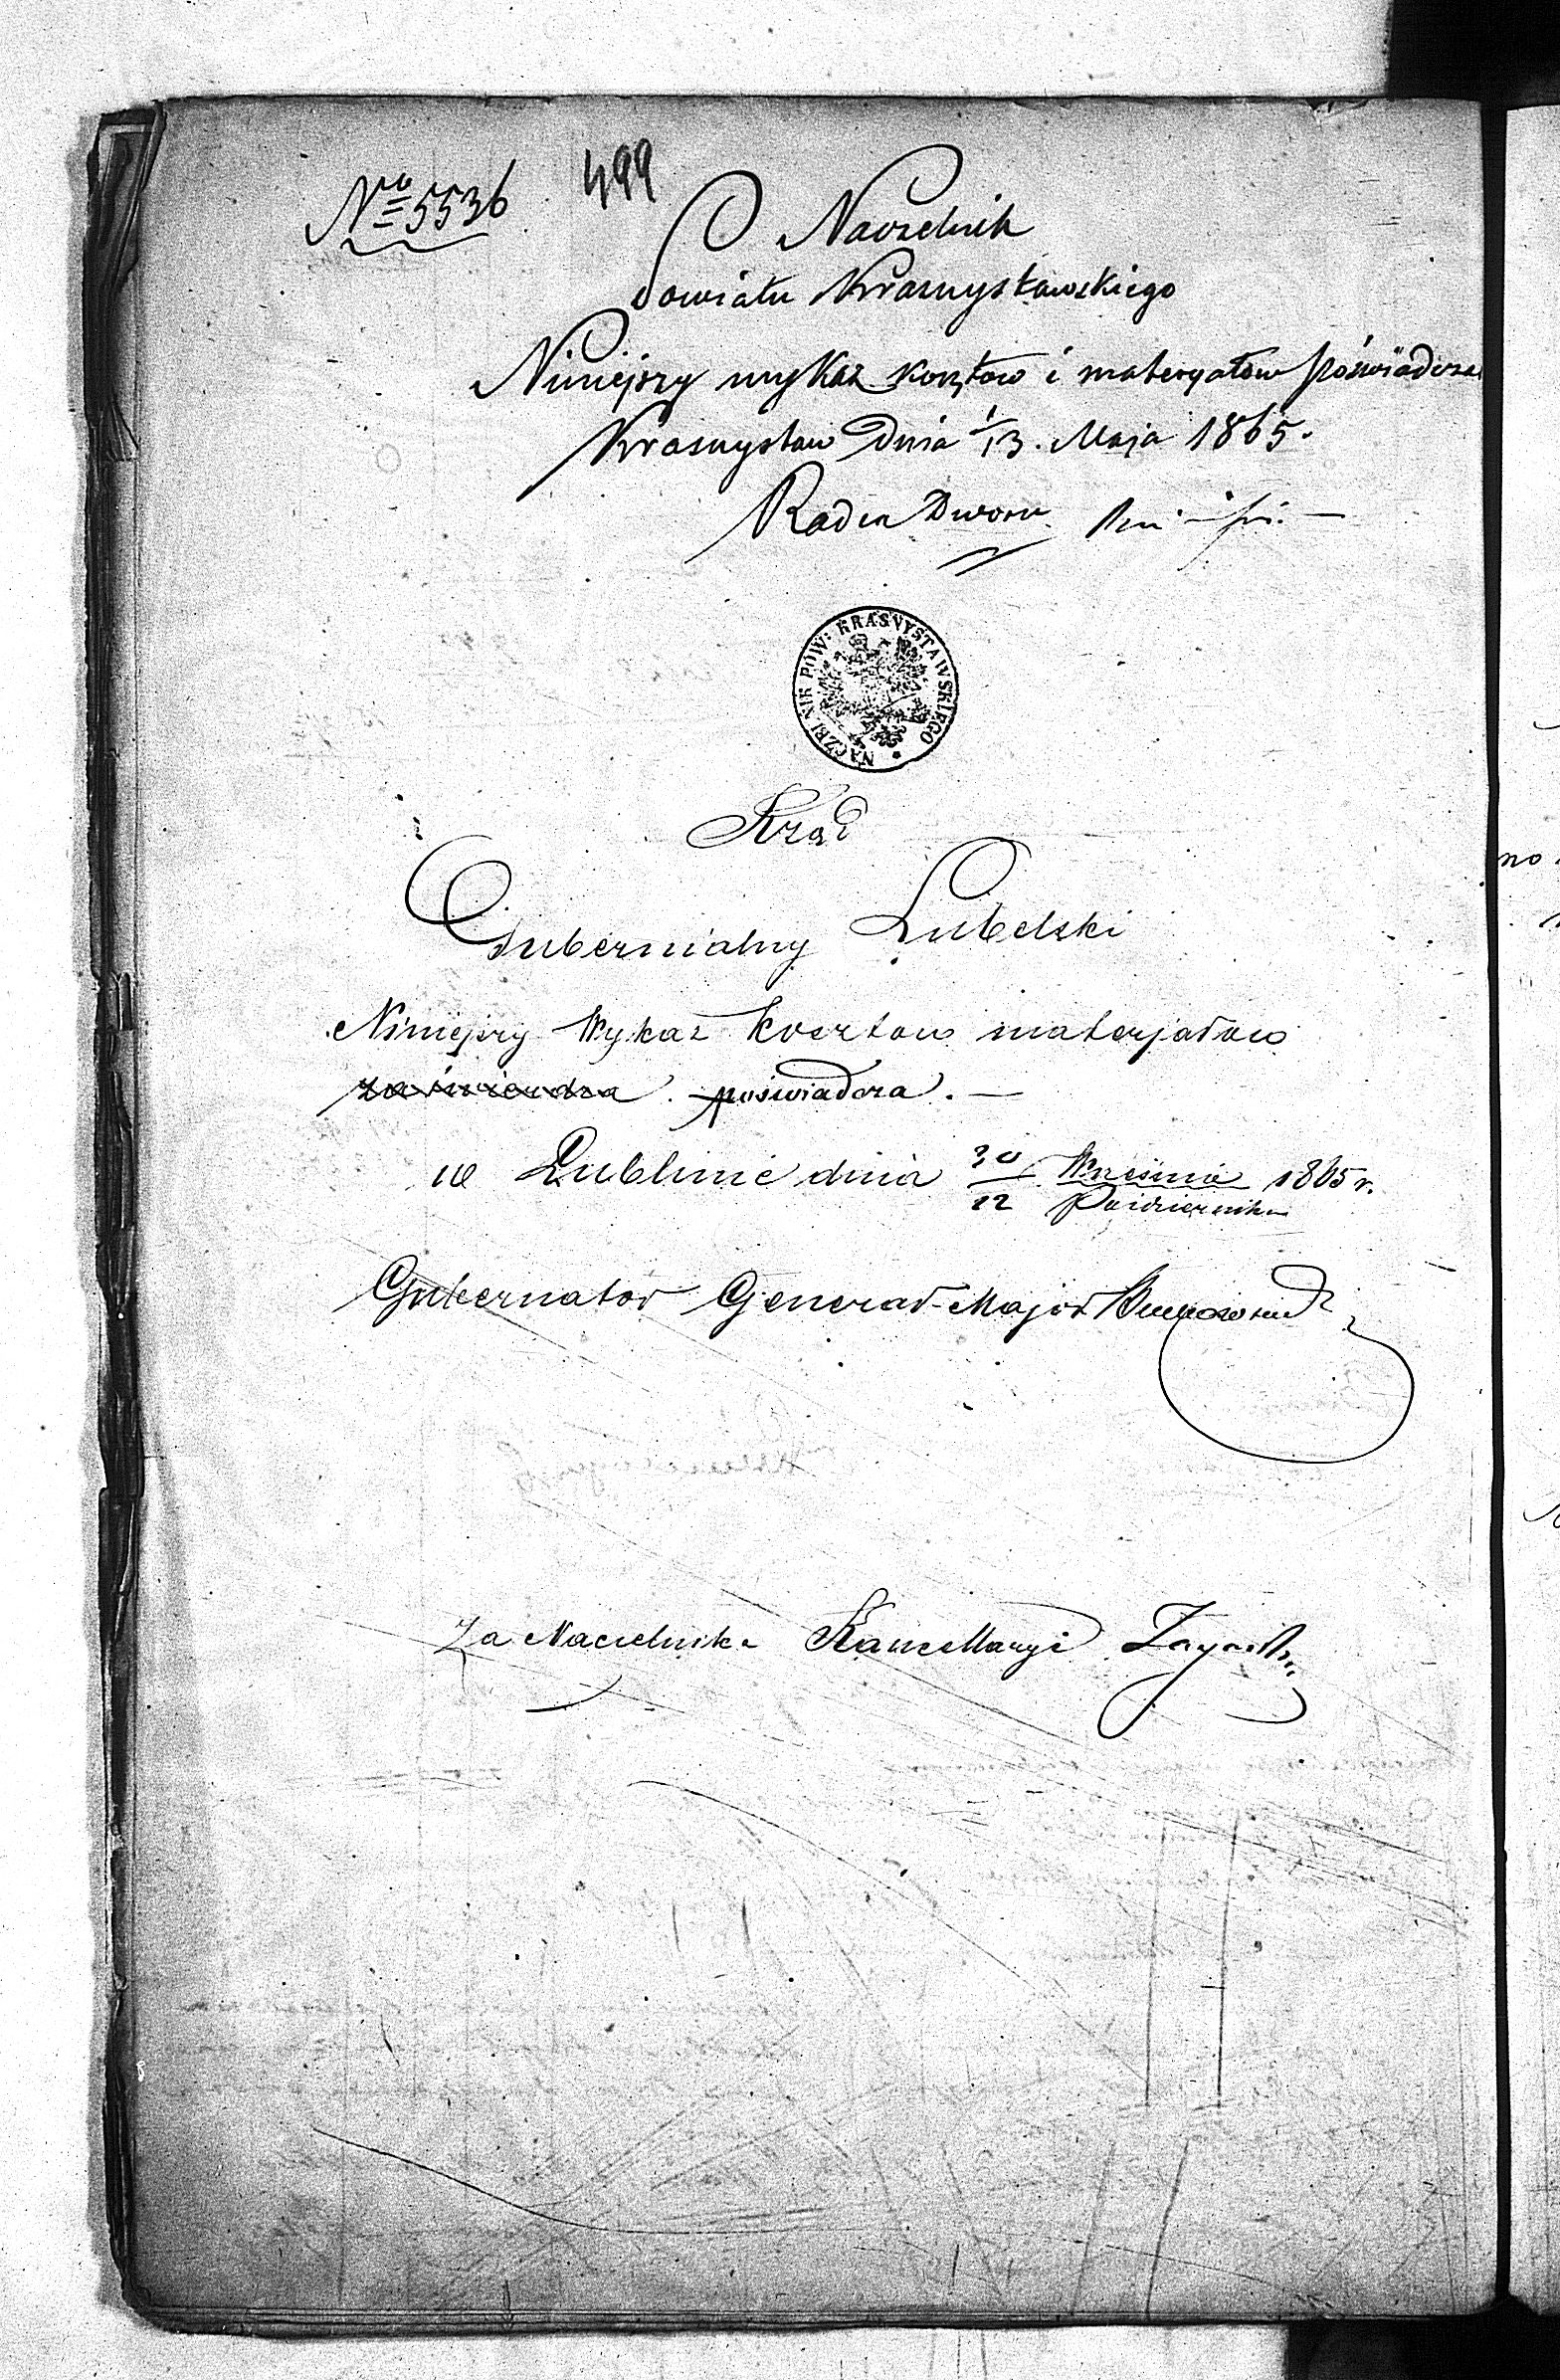 499
No 5536
Naczelnik
Powiatu Krasnystawskiego
Niniejszy wykaz kosztow i materyałow poświadcza
Krasnystaw Dnia 1/13. Maja 1865.
Radca Dworu
NACZELNIK POW: KRASNYSTAWSKIEGO
Rząd
Gubernialny Lubelski
Niniejszy Wykaz kosztow materjałow
zaświerdza poświadcza. —
w Lublinie dnia 30/12 Września/Października 1865 r.
Gubernator Generał-Major
Za Naczelnika Kancellaryi